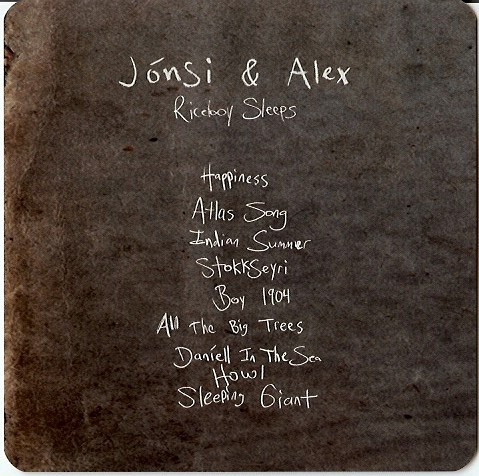 Jónsi & Alex
Riceboy Sleeps
Happiness
Atlas Song
Indian Summer
Stokkseyri
Boy 1904
All The Big Trees
Daníell In The Sea
Howl
Sleeping Giant